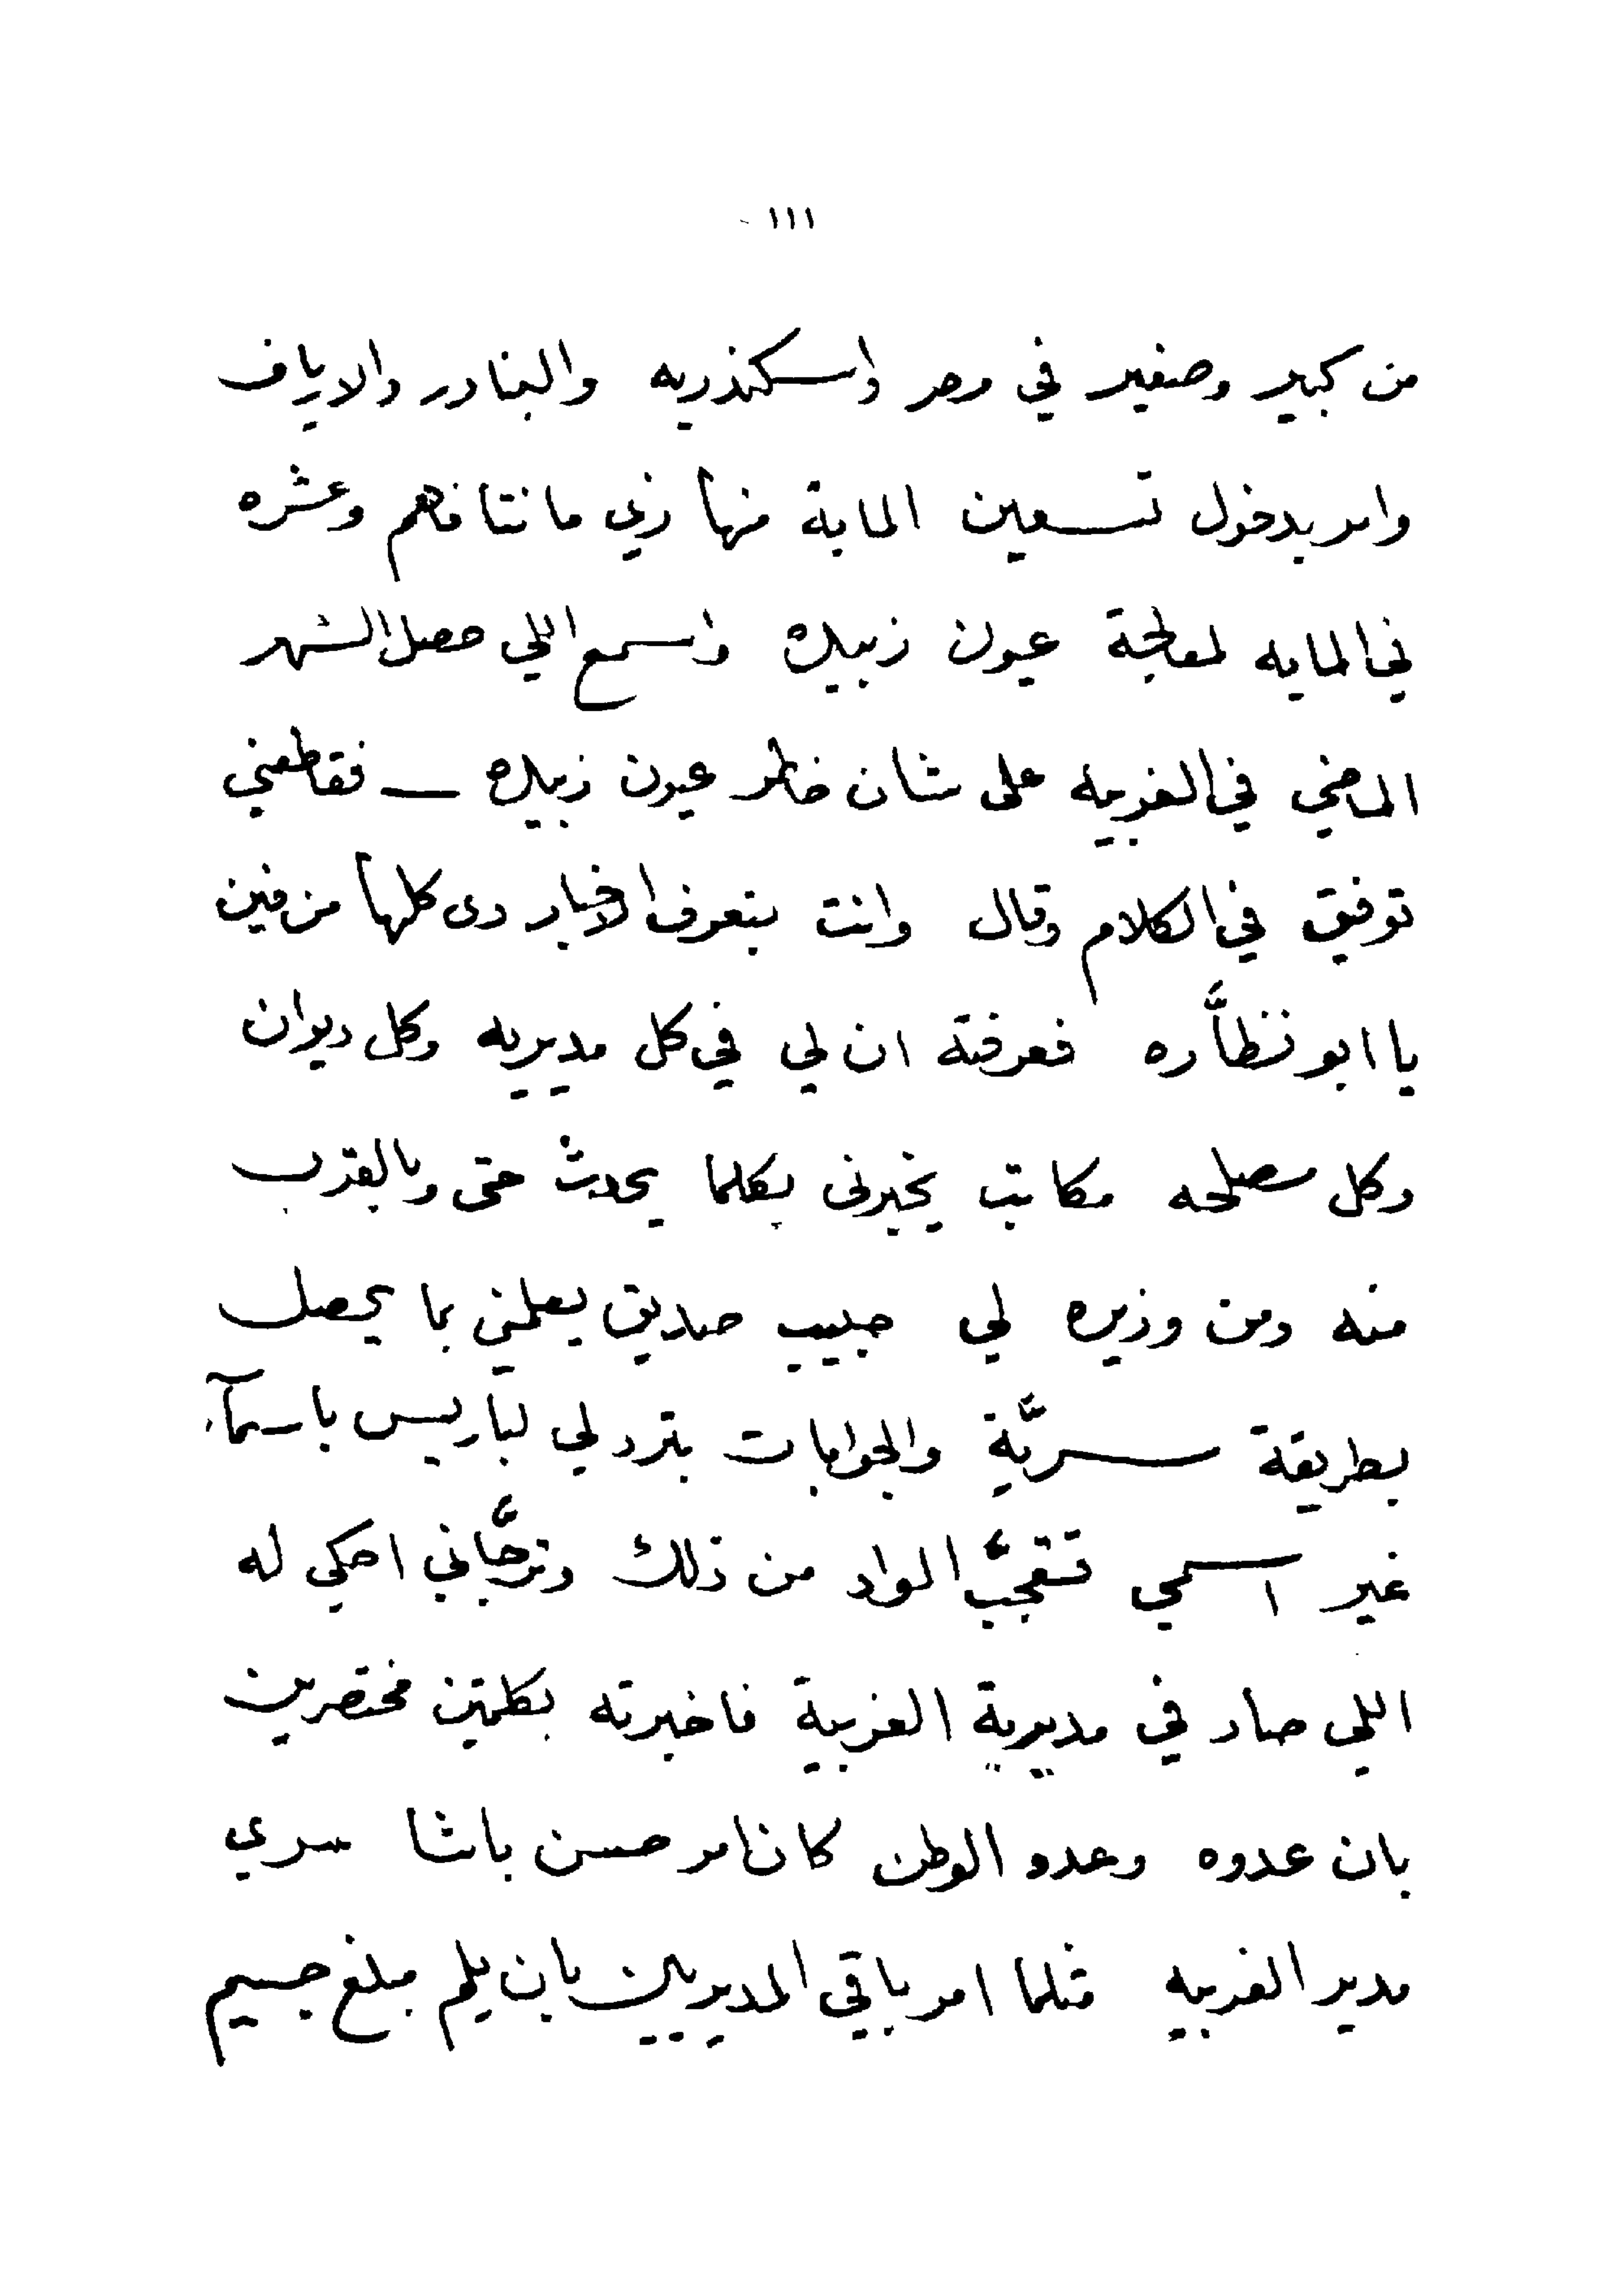 ١١١
من كبير وصغير في مصر واسكندريه والبنادر والارياف
وامر بدخول تسعين الماية منها زي مانتا فاهم وعشره
في المايه لمعالجة عيون زبيده واسمع اللي حصل الشهر
الماضي في الغربيه على شان خاطر عيون زبيده — فقاطعني
توفيق في الكلام وقال وانت بتعرف الاخبار دى كلها من فين
يا ابو نظَّاره فعرفته ان لي في كل مديريه وكل ديوان
وكل مصلحه مكاتب يخبرنى بكلما يحدث حتى وبالقرب
منه ومن وزيره لي حبيب صديق يعلمني بما يحصل
بطريقة سريَّة والجوابات بترد لي لباريس باسمآء
غير اسمي فتعجَّب الواد من ذلك وترجَّاني احكي له
اللي صار في مديرية الغربية فاخبرته بكلمتين مختصرين
بان عدوه وعدو الوطن كان امر حسن باشا سري
مدير الغربيه مثلما امر باقي المديريين بان يلم مبلغ جسيم